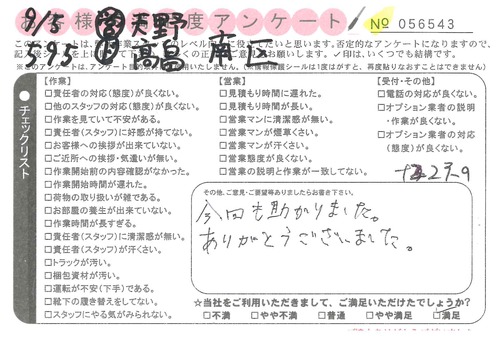 お客様満足度アンケート
№ 056543
9/5 天野
5-9.5 高畠 南区
【作業】
□責任者の対応(態度)が良くない。
□他のスタッフの対応(態度)が良くない。
□作業を見ていて不安がある。
□責任者(スタッフ)に好感が持てない。
□お客様への挨拶が出来ていない。
□ご近所への挨拶・気遣いが無い。
□作業開始前の内容確認がなかった。
□作業開始時間が遅れた。
□荷物の取り扱いが雑である。
□お部屋の養生が出来ていない。
□作業時間が長すぎる。
□責任者(スタッフ)に清潔感が無い。
□責任者(スタッフ)が汗くさい。
□トラックが汚い。
□梱包資材が汚い。
□運転が不安(下手)である。
□靴下の履き替えをしてない。
□スタッフにやる気がみられない。
【営業】
□見積もり時間に遅れた。
□見積もり時間が長い。
□営業マンに清潔感が無い。
□営業マンが煙草くさい。
□営業マンが汗くさい。
□営業態度が良くない。
□営業の説明と作業が一致してない。
【受付・その他】
□電話の対応が良くない。
□オプション業者の説明
・作業が良くない。
□オプション業者の対応
(態度)が良くない。
チェックリスト
その他、ご意見・ご要望等ありましたらお書き下さい。
今回も助かりました。
ありがとうございました。
☆当社をご利用いただきまして、ご満足いただけたでしょうか?
□不満 □やや不満 □普通 □やや満足 □満足